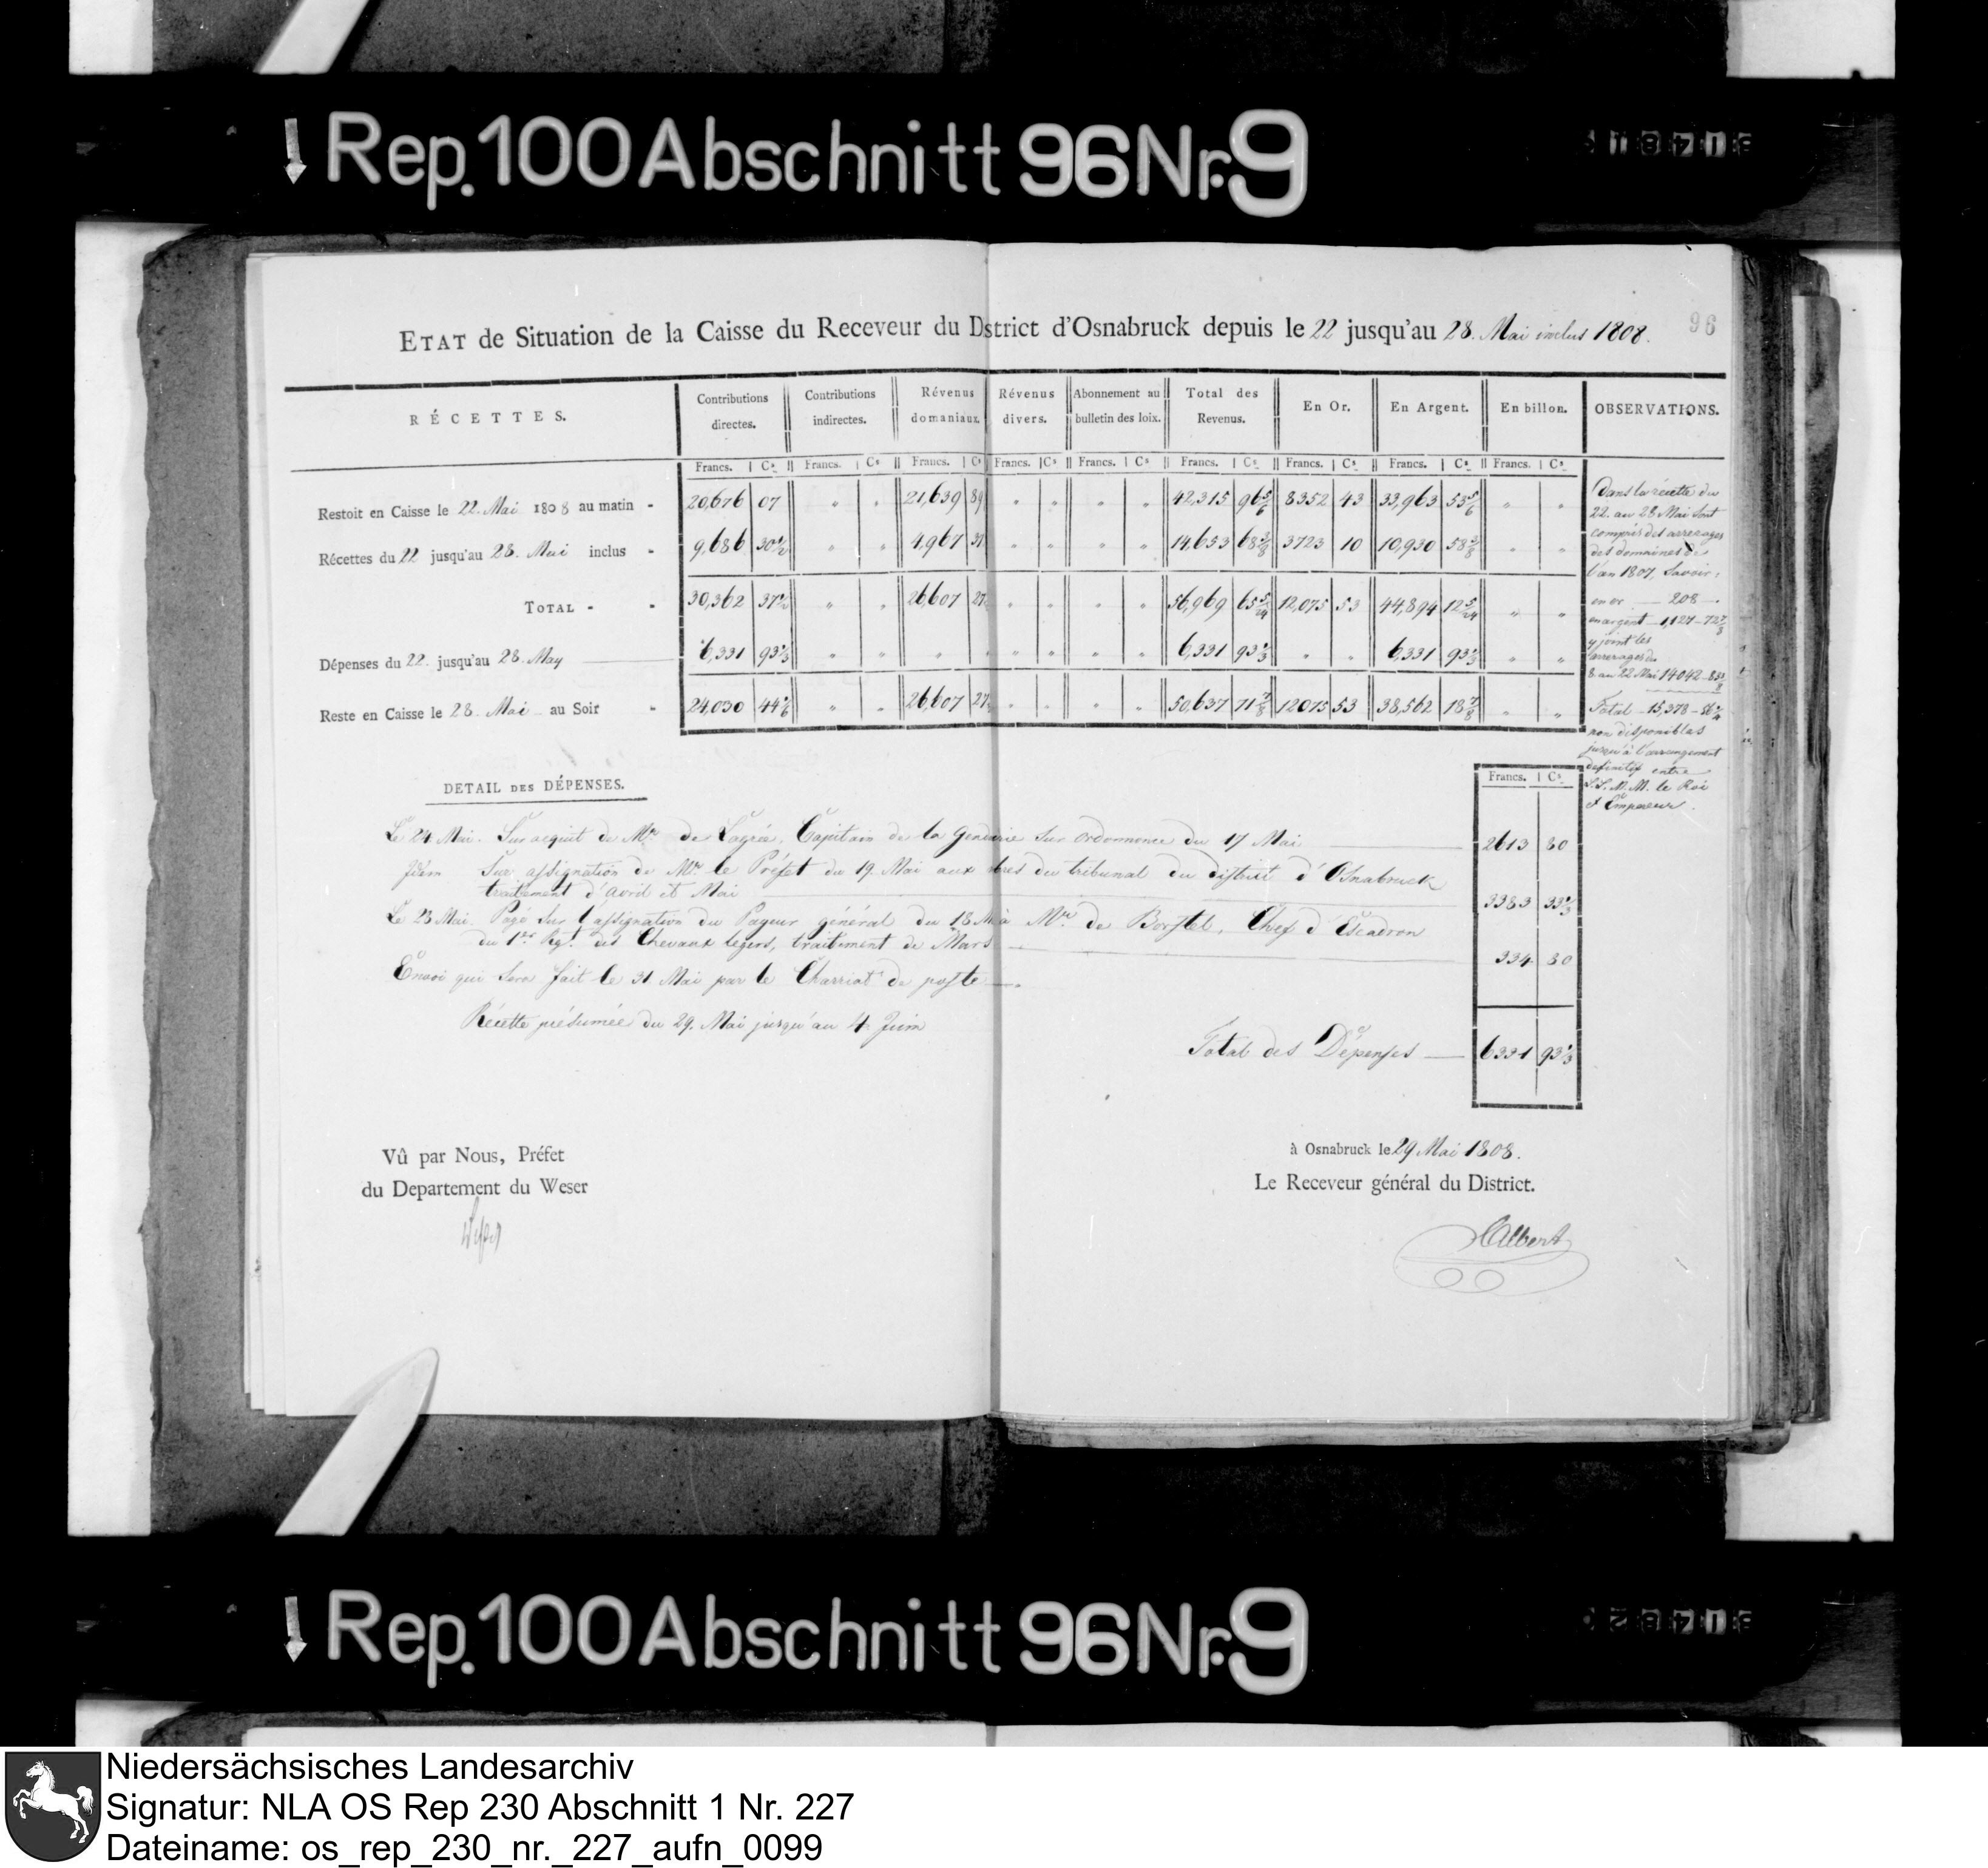 Rep. 100 Abschnitt 96 Nr. 9
ETAT de Situation de la Caisse du Receveur du Dstrict d'Osnabruck depuis le 22 jusqu'au 28. Mai inclus 1808.
96
RÉCETTES. Contributions directes. Contributions indirectes. Révenus domaniaux. Révenus divers. Abonnement au bulletin des loix. Total des Revenus. En Or. En Argent. En billon. OBSERVATIONS.
Francs. Cs. Francs. Cs Francs. Cs Francs. Cs Francs. Cs Francs. Cs. Francs. Cs. Francs. Cs. Francs. Cs.
Restoit en Caisse le 22. Mai 1808 au matin - 20,676 07 " " 21,639 89 " " " " 42,315 96 5/6 8352 43 33,963 53 5/6 " "
Récettes du 22 jusqu'au 28. Mai inclus - 9,686 30 1/2 " " 4,967 37 " " " " 14,653 68 3/8 3723 10 10,930 58 3/8 " "
TOTAL - - 30,362 37 1/2 " " 26,607 27 " " " " 56,969 65 5/24 12,075 53 44,894 12 5/24 " "
Dépenses du 22. jusqu'au 28. May 6,331 93 1/3 " " " " " " " " 6,331 93 1/3 " " 6,331 93 1/3 " "
Reste en Caisse le 28. Mai au Soir - 24,030 44 1/6 " " 26,607 27 " " " " 50,637 71 7/8 12075 53 38,562 18 7/8 " "
Dans la récette du
22. au 28 Mai sont
compris des arrerages
des domaines de
l'an 1807, Savoir:
en or — 208 —
en argent — 1,127 - 72 7/8
y joint les
arrerages du
8 au 22 Mai 14042 - 83
Total — 15,378 - 56
non disponibles
jusqu'à l'arrangement
definitif entre
S.S.M.M. le Roi
& l'Empereur.
DETAIL DES DÉPENSES.
Francs. Cs.
Le 24 Mai. Sur acquit de Mr. de Lagrée, Capitain de la Genderie sur ordonnence du 17 Mai 2613 80
Idem Sur assignation de Mr. le Préfet du 19. Mai aux mbres du tribunal du district d'Osnabruck
traitement d'avril et Mai 3383 33 1/3
Le 28 Mai. Payé sur l'assignation du Payeur général du 18 M. à Mr. de Borstel, Chef d'Escadron
du 1er Rgt. des Chevaux legers, traitement de Mars 334 80
Envoi qui sera fait le 31 Mai par le Charriot de poste —
Récette présumée du 29. Mai jusqu'au 4 Juin
Total des Dépenses — 6331 93 1/3
Vû par Nous, Préfet
du Departement du Weser
à Osnabruck le 29 Mai 1808.
Le Receveur général du District.
Albert
Rep. 100 Abschnitt 96 Nr. 9
Niedersächsisches Landesarchiv
Signatur: NLA OS Rep 230 Abschnitt 1 Nr. 227
Dateiname: os_rep_230_nr._227_aufn_0099